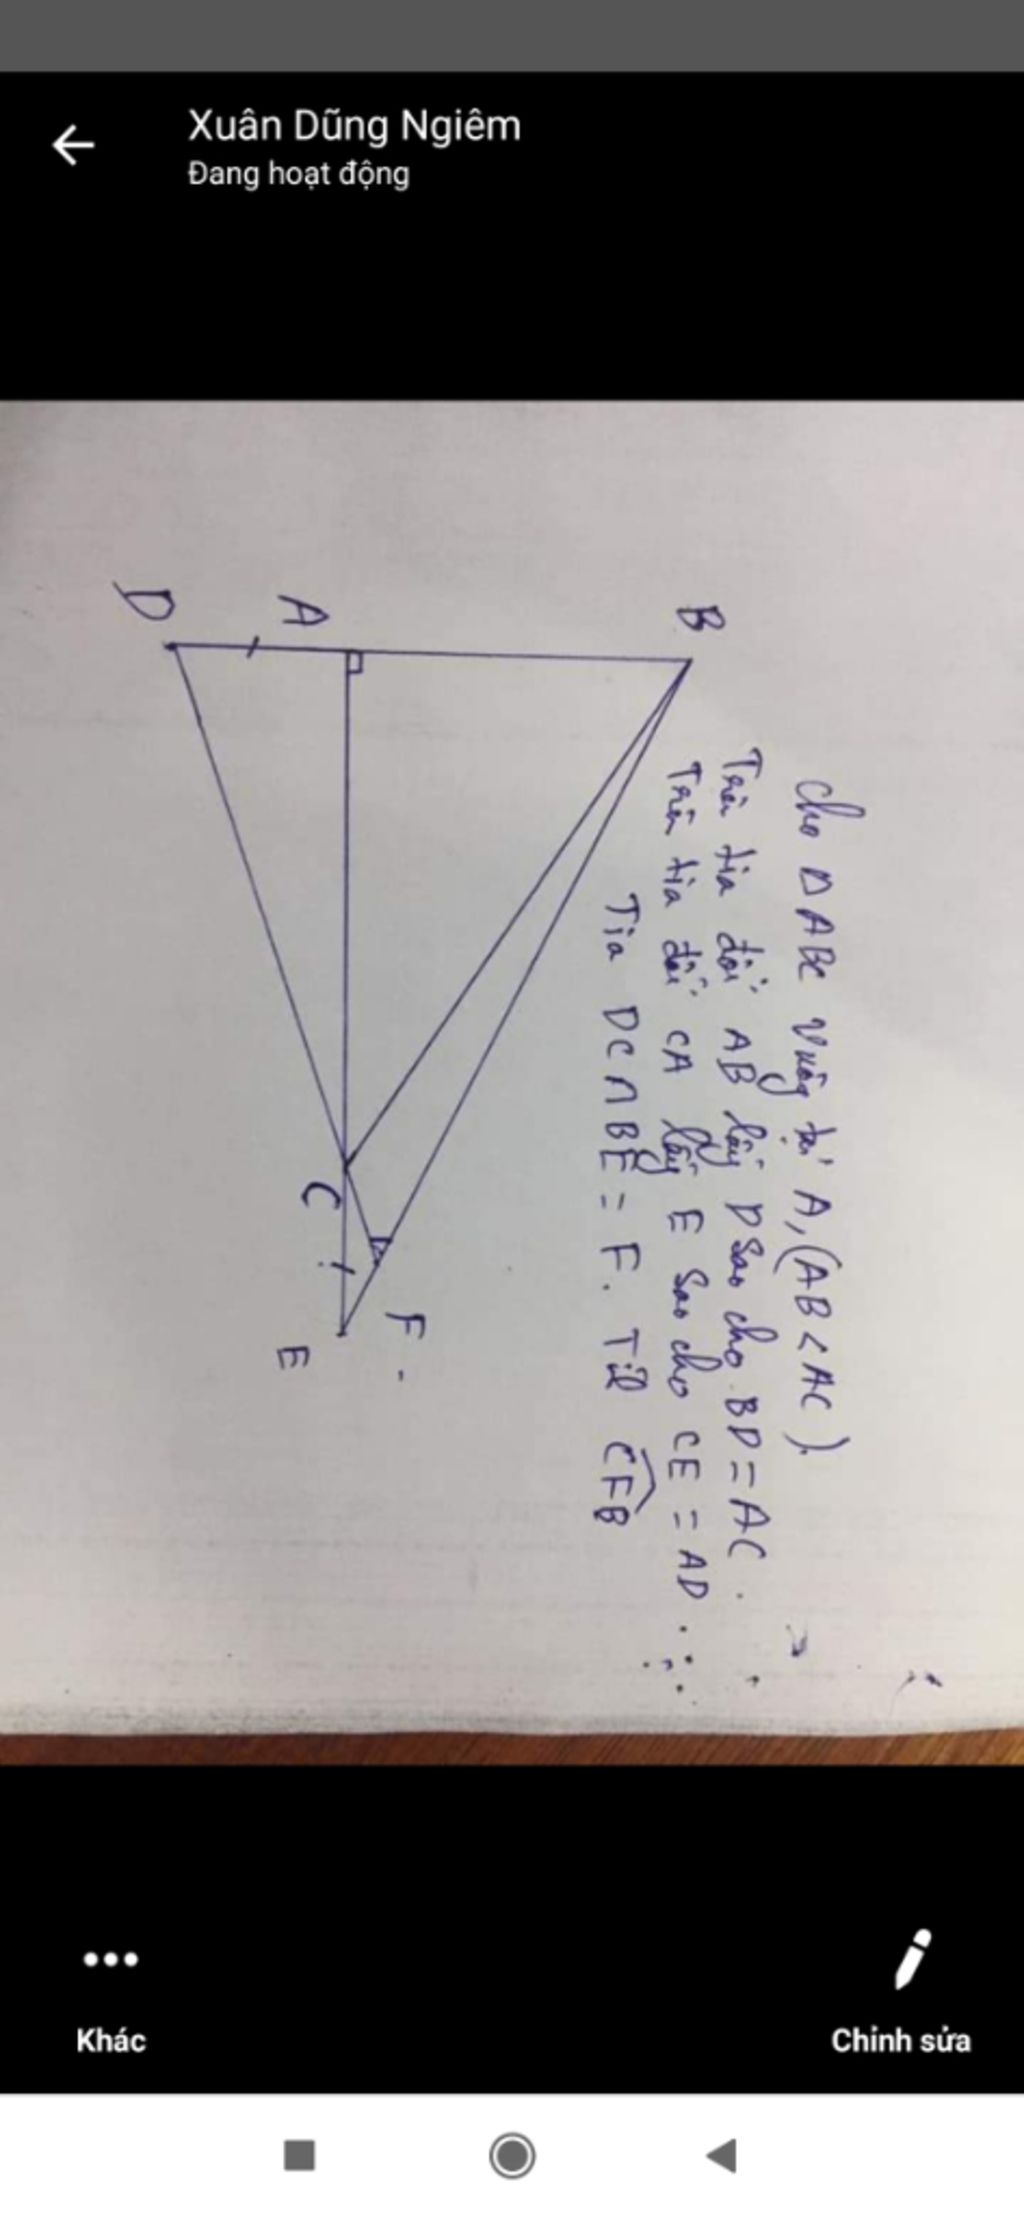 Xuân Dũng Ngiêm
Đang hoạt động
Cho Δ ABC vuông tại A, (AB < AC).
Trên tia đối AB lấy D sao cho BD = AC.
Trên tia đối CA lấy E sao cho CE = AD
Tia DC ∩ BE = F. Tìm CFB
B
A
D
C
F
E
Khác
Chỉnh sửa